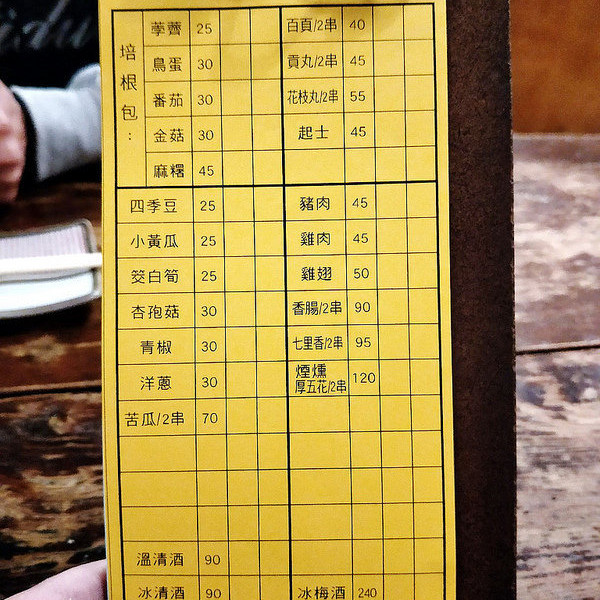 培根包：
荸薺 25
鳥蛋 30
番茄 30
金菇 30
麻糬 45
四季豆 25
小黃瓜 25
筊白筍 25
杏孢菇 30
青椒 30
洋蔥 30
苦瓜/2串 70
溫清酒 90
冰清酒 90
百頁/2串 40
貢丸/2串 45
花枝丸/2串 55
起士 45
豬肉 45
雞肉 45
雞翅 50
香腸/2串 90
七里香/2串 95
煙燻
厚五花/2串 120
冰梅酒 240